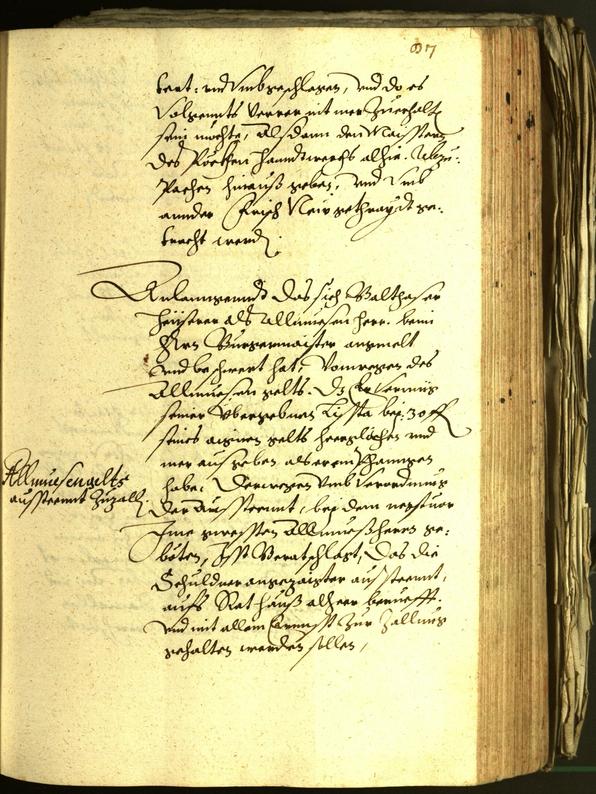 97
kert: und umbgeschlagen, und do es
volgennts verrer nit mer zuerhalt
sein möchte, alsdann den Maistern
des Pöckhen hanndtwerchs alhie. Abzu:
Pachen hinauß geben, und umb
annder frisch Neu gethraydt ge:
bracht werd.
Anlanngenndt das sich Balthasar
als Allmuesen herr. beim
Hrn Burgermaister angmelt
und beschwert hat, vonwegen des
Allmuesen gelts. Dz Er vermüg
seiner ubergebnen Lissta bey. 30 fl
seines aignen gelts hergelichen und
mer ausgeben als er empfhanngen
habe. Derwegen umb verordnung
der ausstennt, bei dem
Ime gwesten Allmueßherrn ge:
böten, Ist Beratschlagt, das die
Schuldner angezaigter ausstennt,
aufs Rathauß alheer beruefft.
und mit allem Ernnst zur Zallung
gehalten werden sollen,
Allmuesengelts
ausstenndt Zuzall.